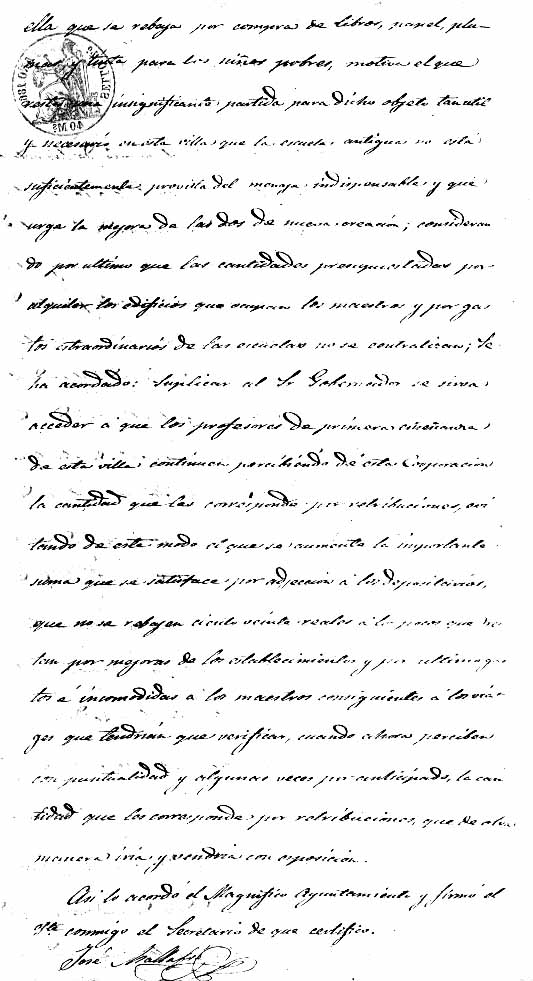 ella que se rebaja por compra de libros, papel, plu-
mas y tinta para los niños pobres, motiva el que
reste una insignificante partida para dicho objeto tan util
y necesario en esta villa que la escuela antigua no está
suficientemente provista del menaje indispensable y que
urge la mejora de las dos de nueva creación; consideran
do por ultimo que las cantidades presupuestadas por
alquiler los edificios que ocupan los maestros y por gas
tos estraordinarios de las escuelas no se centralizan; Se
ha acordado: Suplicar al Sr Gobernador se sirva
acceder á que los profesores de primera enseñanza
de esta villa continuen percibiendo de esta Corporacion
la cantidad que les corresponde por retribuciones, evi
tando de este modo el que se aumente la importante
suma que se satisface por adjeccion á los depositarios,
que no se rebajen ciento veinte reales á los pocos que res
tan por mejoras de los establecimientos y por ultimo gas
tos é incomodidas á los maestros consiguientes á los via-
ges que tendrian que verificar, cuando ahora perciben
con puntualidad y algunas veces por anticipado, la can
tidad que les corresponde por retribuciones, que de otra
manera iria y vendria con esposición.
Asi lo acordó el Magnifico Ayuntamiento y firmó el
conmigo el Secretario de que certifico.
José